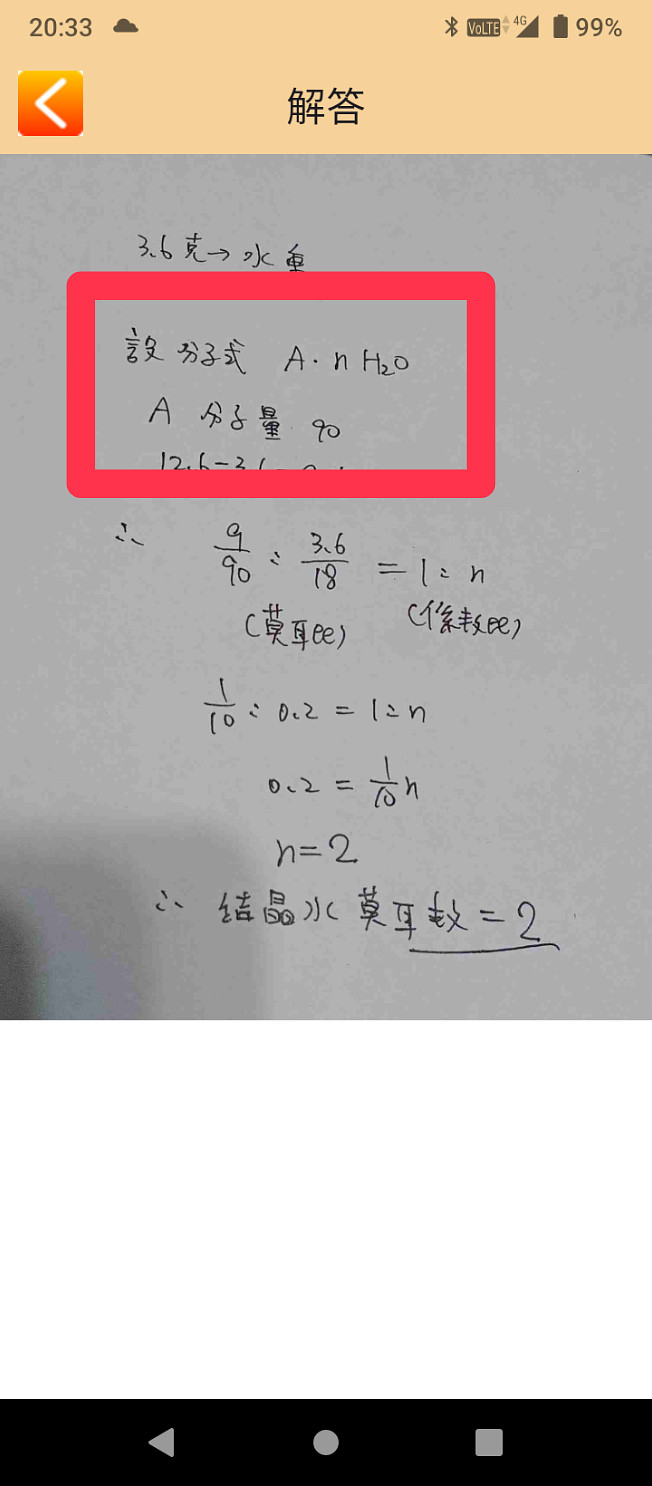 20:33
VoLTE 4G 99%
解答
3.6克→水重
設分子式 A·nH₂O
A 分子量 90
∴ 9/90 : 3.6/18 = 1 : n
(莫耳比) (係數比)
1/10 : 0.2 = 1 : n
0.2 = 1/10 n
n=2
∴ 结晶水莫耳数=2